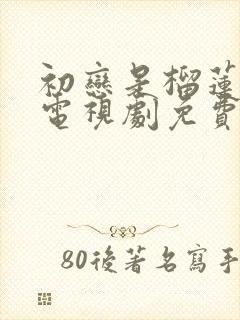 初戀是榴蓮
電視劇免費
80後著名寫手